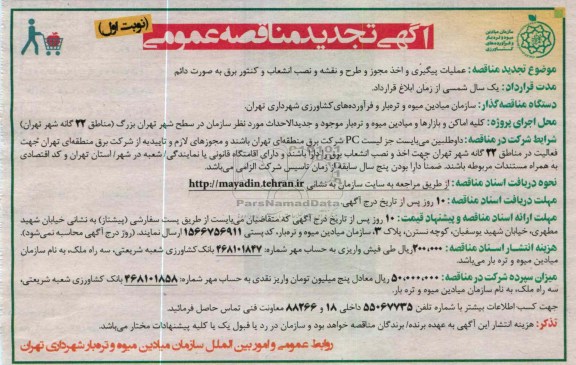 سازمان میادین
میوه و تره‌بار
و فرآورده‌های
کشاورزی
آگهی تجدید مناقصه عمومی
(نوبت اول)
موضوع تجدید مناقصه: عملیات پیگیری و اخذ مجوز و طرح و نقشه و نصب انشعاب و کنتور برق به صورت دائم
مدت قرارداد: یک سال شمسی از زمان ابلاغ قرارداد.
دستگاه مناقصه‌گذار: سازمان میادین میوه و تره‌بار و فرآورده‌های کشاورزی شهرداری تهران.
محل اجرای پروژه: کلیه اماکن و بازارها و میادین میوه و تره‌بار موجود و جدیدالاحداث مورد نظر سازمان در سطح شهر تهران بزرگ (مناطق ۲۲ گانه شهر تهران)
شرایط شرکت در مناقصه: داوطلبین می‌بایست جز لیست PC شرکت برق منطقه‌ای تهران باشند و مجوزهای لازم و تاییدیه از شرکت برق منطقه‌ای تهران جهت
فعالیت در مناطق ۲۲ گانه شهر تهران جهت اخذ و نصب انشعاب برق را دارا باشند و دارای اقامتگاه قانونی یا نمایندگی/ شعبه در شهر/ استان تهران و کد اقتصادی
به همراه مستندات مربوطه باشند. ضمناً دارا بودن پنج سال سابقه از زمان تاسیس شرکت الزامی می‌باشد.
نحوه دریافت اسناد مناقصه: از طریق مراجعه به سایت سازمان به نشانی http://mayadin.tehran.ir
مهلت دریافت اسناد مناقصه: ۱۰ روز پس از تاریخ درج آگهی.
ParsNamadData
مهلت ارائه اسناد مناقصه و پیشنهاد قیمت: ۱۰ روز پس از تاریخ درج آگهی که متقاضیان می‌بایست از طریق پست سفارشی (پیشتاز) به نشانی خیابان شهید
مطهری، خیابان شهید یوسفیان، کوچه نسترن، پلاک ۳، سازمان میادین میوه و تره‌بار، کدپستی ۱۵۶۶۷۵۶۹۱۱ ارسال نمایند. (روز درج آگهی محاسبه نمی‌شود).
هزینه انتشار اسناد مناقصه: ۲۰۰,۰۰۰ ریال طی فیش واریزی به حساب مهر شماره: ۴۶۸۱۰۱۸۴۷ بانک کشاورزی شعبه شریعتی، سه راه ملک، به نام سازمان
میادین میوه و تره بار می‌باشد.
میزان سپرده شرکت در مناقصه: ۵۰,۰۰۰,۰۰۰ ریال معادل پنج میلیون تومان واریز نقدی به حساب مهر شماره: ۴۶۸۱۰۱۸۵۸ بانک کشاورزی شعبه شریعتی،
سه راه ملک، به نام سازمان میادین میوه و تره بار.
جهت کسب اطلاعات بیشتر با شماره تلفن ۵۵۰۶۷۷۳۵ داخلی ۱۸ و ۸۸۲۶۶ معاونت فنی تماس حاصل فرمائید.
تذکر: هزینه انتشار این آگهی به عهده برنده/ برندگان مناقصه خواهد بود و سازمان در رد یا قبول یک یا کلیه پیشنهادات مختار می‌باشد.
روابط عمومی و امور بین الملل سازمان میادین میوه و تره‌بار شهرداری تهران